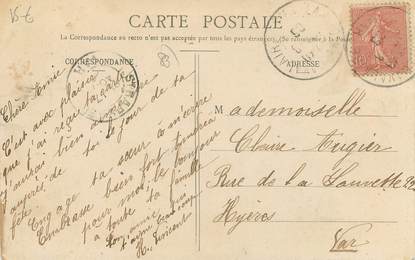 15-6
CARTE POSTALE
La Correspondance au recto n'est pas acceptée par tous les pays étrangers. (Se renseigner à la Poste)
CORRESPONDANCE
ADRESSE
Chère Amie
C'est avec plaisir
que j'ai reçu ta carte
J'aurai bien
auprès de toi le jour de ta
fête.
Engage ta sœur à m'écrire
Embrasse bien fort
pour moi, le bonjour
à toute ta famille
Ton amie qui
t'aime beaucoup
H. Vincent
Mademoiselle
Claire Augier
Rue de la 22
Hyères
Var